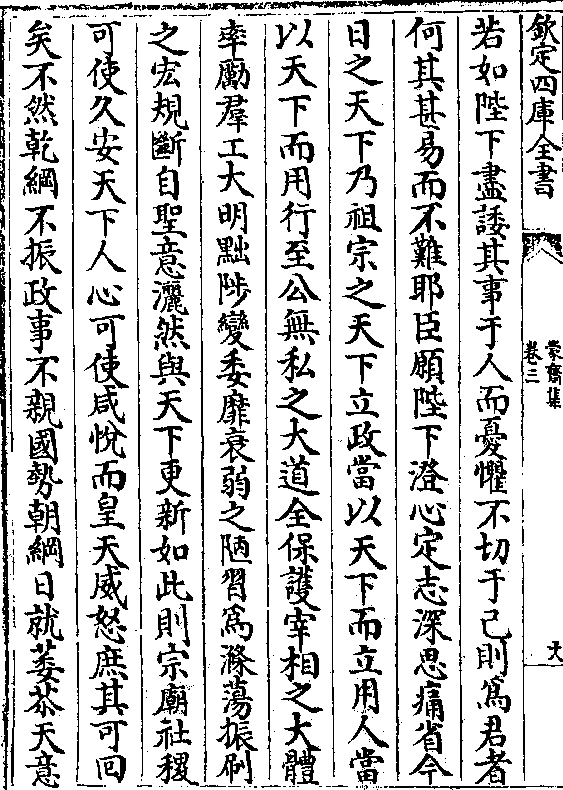 欽定四庫全書
蒙齋集
卷三
六
若如陛下盡諉其事于人而憂懼不切于己則為君者
何其甚易而不難耶臣願陛下澄心定志深思痛省今
日之天下乃祖宗之天下立政當以天下而立用人當
以天下而用行至公無私之大道全保護宰相之大體
率勵羣工大明黜陟變委靡衰弱之陋習為滌蕩振刷
之宏規斷自聖意灑然與天下更新如此則宗廟社稷
可使久安天下人心可使咸悅而皇天威怒庶其可回
矣不然乾綱不振政事不親國勢朝綱日就萎苶天意